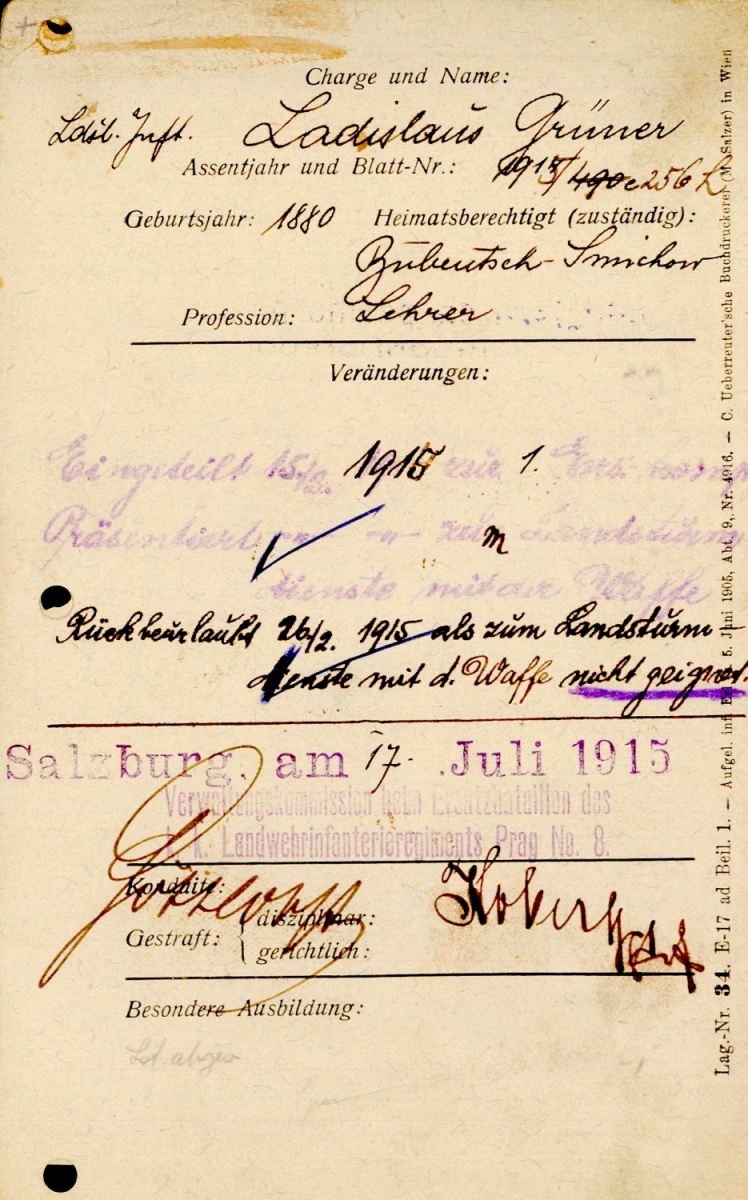 Charge und Name:
Ldst. Inft. Ladislaus Grüner
Assentjahr und Blatt-Nr.: 1915/490c 256 L
Geburtsjahr: 1880 Heimatsberechtigt (zuständig):
Bubentsch - Smichow
Profession: Lehrer
Veränderungen:
Eingeteilt 15/2. 1915 zur 1. Ers. komp
Präsentiert zum Landsturm
dienste mit der Waffe
Rückbeurlaubt 26/2. 1915 als zum Landsturm-
dienste mit d. Waffe nicht geignet.
Salzburg, am 17. Juli 1915
Verwaltungskommission beim Ersatzbataillon des
k. k. Landwehrinfanterieregiments Prag No. 8.
Konduite:
Gestraft: { disziplinar:
gerichtlich:
Besondere Ausbildung:
Lag.-Nr. 34. E-17 ad Beil. 1. — Aufgel. inf. Erl. 5. Juni 1905, Abt. 9, Nr. 4916. — C. Ueberreuter'sche Buchdruckerei (M. Salzer) in Wien